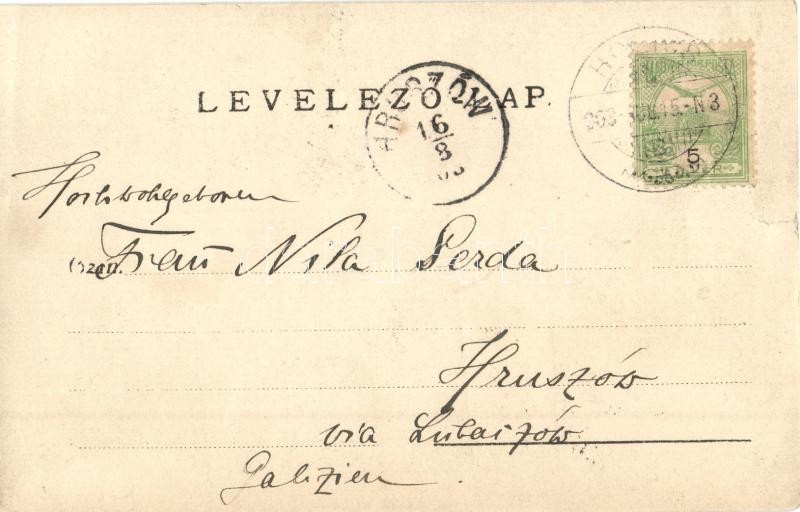 LEVELEZŐ-LAP.
HRUSZÓW
16
8
MAGYAR KIR. POSTA
903
N3
5
Hochwohlgeboren
Frau Nila Serda
Hruszów
via Lubaszów
Galizien